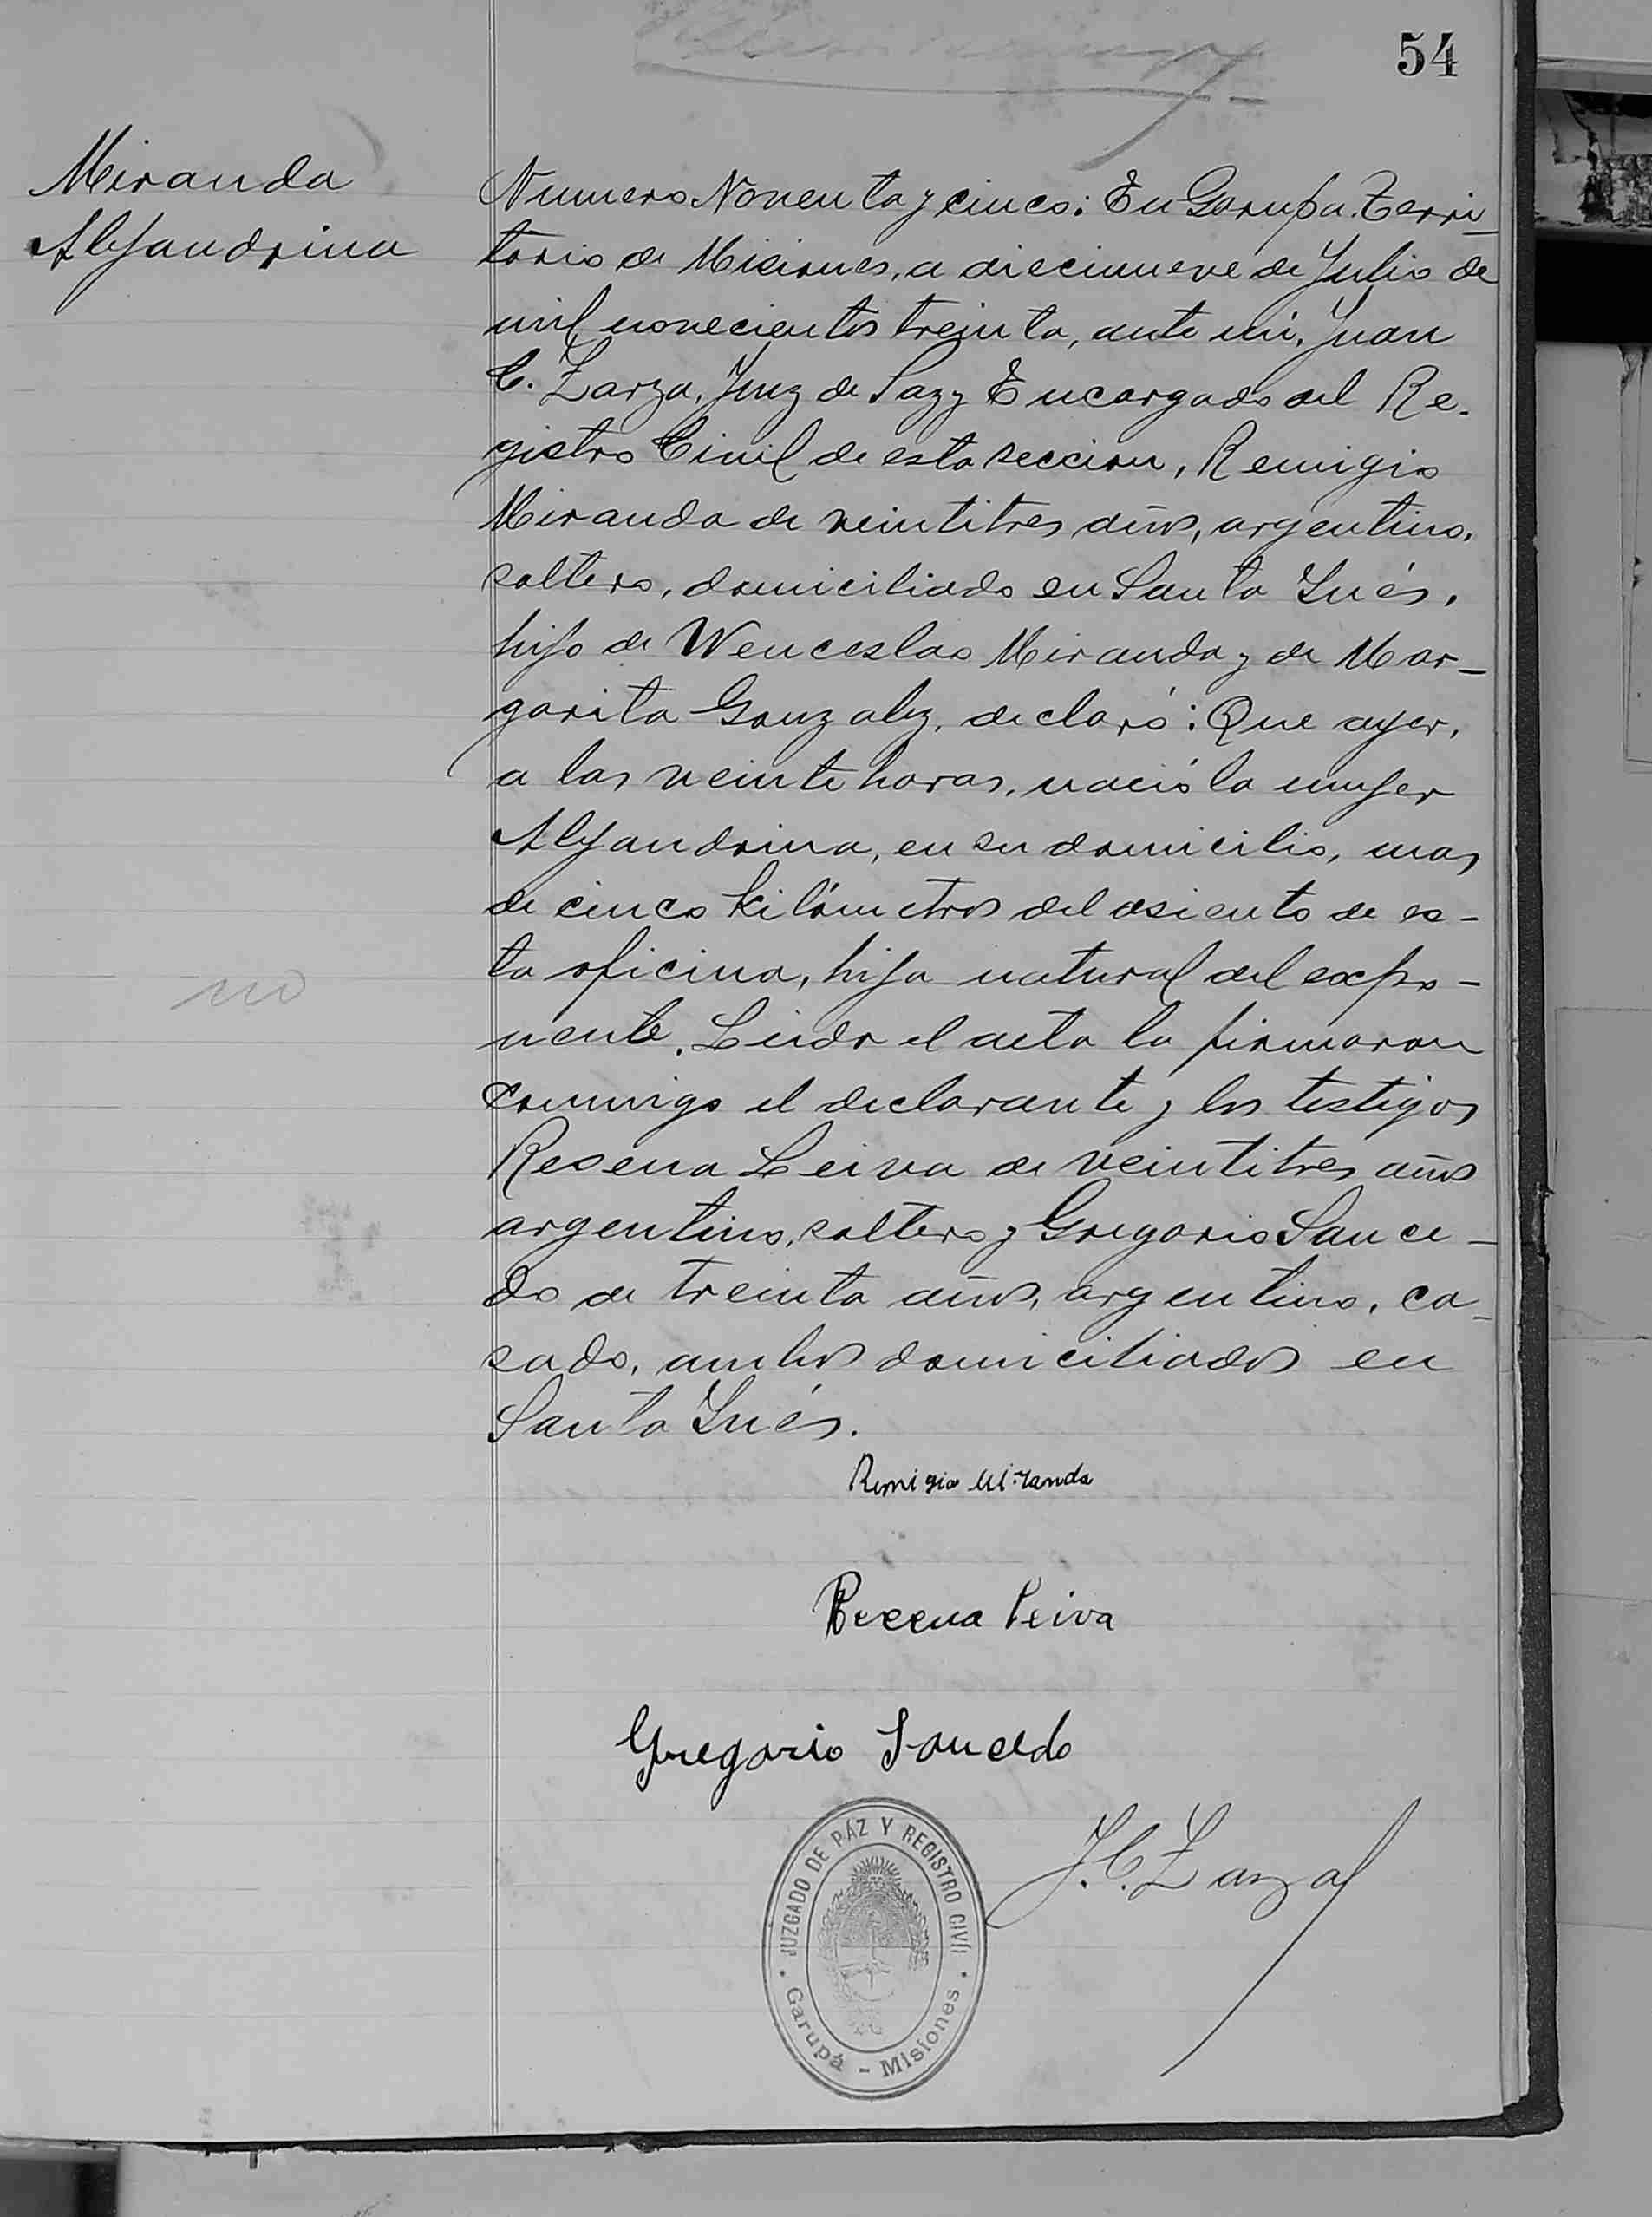 54
Miranda
Alejandrina
Numero Noventa y cinco: En Garupa. Terri-
torio de Misiones, a diecinueve de Julio de
mil novecientos treinta, ante mi, Juan
C. Zarza, Juez de Paz y Encargado del Re-
gistro Civil de esta seccion, Remigio
Miranda de veintitres años, argentino,
soltero, domiciliado en Santa Inés,
hijo de Wenceslao Miranda y de Mar-
garita Gonzalez, declaró: Que ayer,
a las veinte horas, nació la mujer
Alejandrina, en su domicilio, mas
de cinco kilómetros del asiento de es-
ta oficina, hija natural del expo-
nente. Leida el acta la firmaron
conmigo el declarante y los testigos
Resena Leiva de veintitres años
argentino, soltero y Gregorio Sauce-
do de treinta años, argentino, ca-
sado, ambos domiciliados en
Santa Inés.
no
Remigio Miranda
Resena Leiva
Gregorio Saucedo
J. C. Zarza
JUZGADO DE PAZ Y REGISTRO CIVIL
Garupá - Misiones